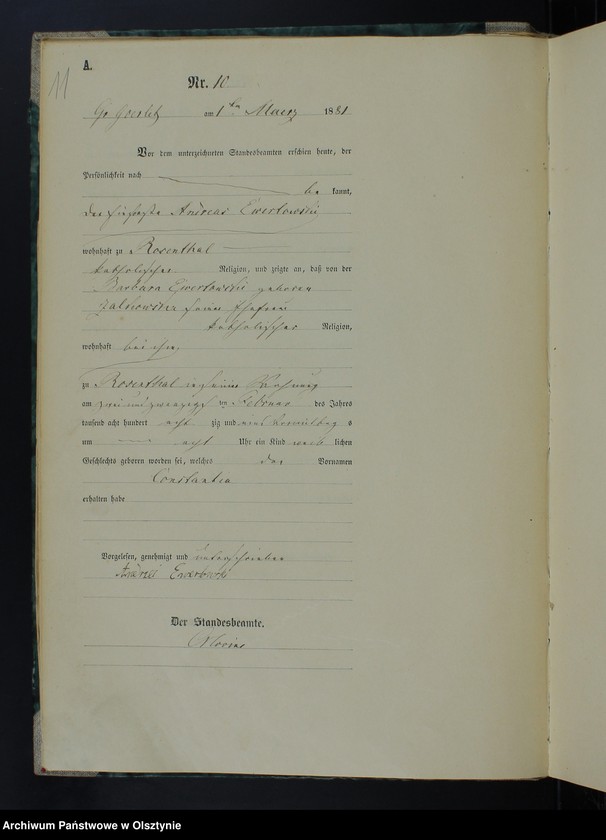 11
A.
Nr. 10
am 1ten Maerz 1881
Vor dem unterzeichneten Standesbeamten erschien heute, der
Persönlichkeit nach
be kannt,
der Andreas Ewertowski
wohnhaft zu Rosenthal
katholischer Religion, und zeigte an, daß von der
Barbara Ewertowski geboren
seiner Ehefrau
katholischer Religion,
wohnhaft bei ihm,
zu Rosenthal in seiner Wohnung
am zwei und zwanzigsten Februar des Jahres
tausend acht hundert acht zig und eins Vormittag s
um acht Uhr ein Kind weib lichen
Geschlechts geboren worden sei, welches den Vornamen
Constantia
erhalten habe
Vorgelesen, genehmigt und unterschrieben
Andrzei Ewertowski
Der Standesbeamte.
Archiwum Państwowe w Olsztynie